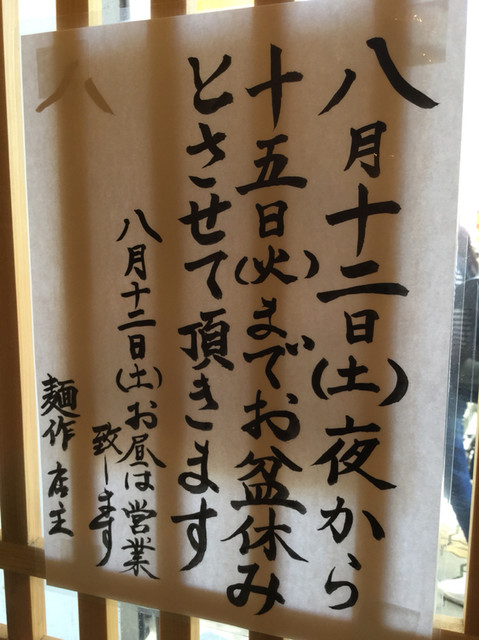 八月十二日(土)夜から
十五日(火)までお盆休み
とさせて頂きます
八月十二日(土)お昼は営業
致します
麺作 店主
八